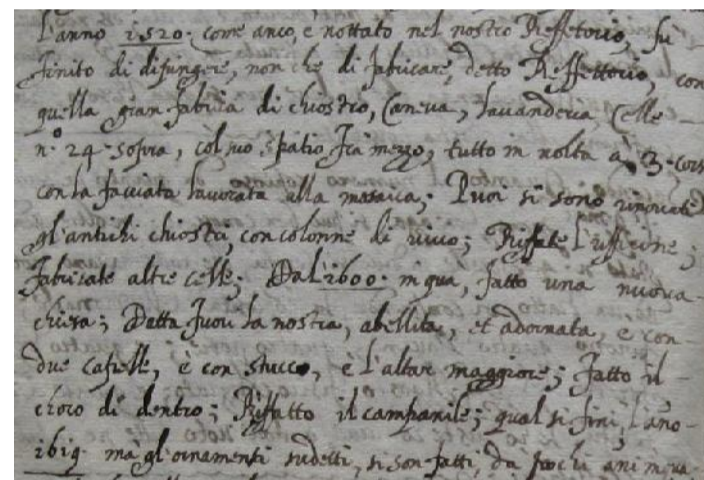 L'anno 1520. come anco, e nottato nel nostro Reffetorio, fù
finito di dipingere, non che di fabricare, detto Reffettorio, con
quella gran fabrica di chiostro, Caneva, lavanderia Celle
n.º 24. sopra, col suo spatio frà mezzo, tutto in volta a 3. cors
con la facciata lavorata alla mosaica; Puoi si sono rinovate
gl'antichi chiostri, con colonne di vivo; Riffate l'ufficine;
fabricate altre celle; Dal 1600. in qua, fatto una nuova
chiesa; Detta fuori la nostra, abellita, et adornata, e con
due capelle, è con stucco, è l'altar maggiore; fatto il
choro di dentro; Riffatto il campanile; qual si finì, l'ano
1619. ma gl'ornamenti sudetti, si son fatti, da pochi ani in qua